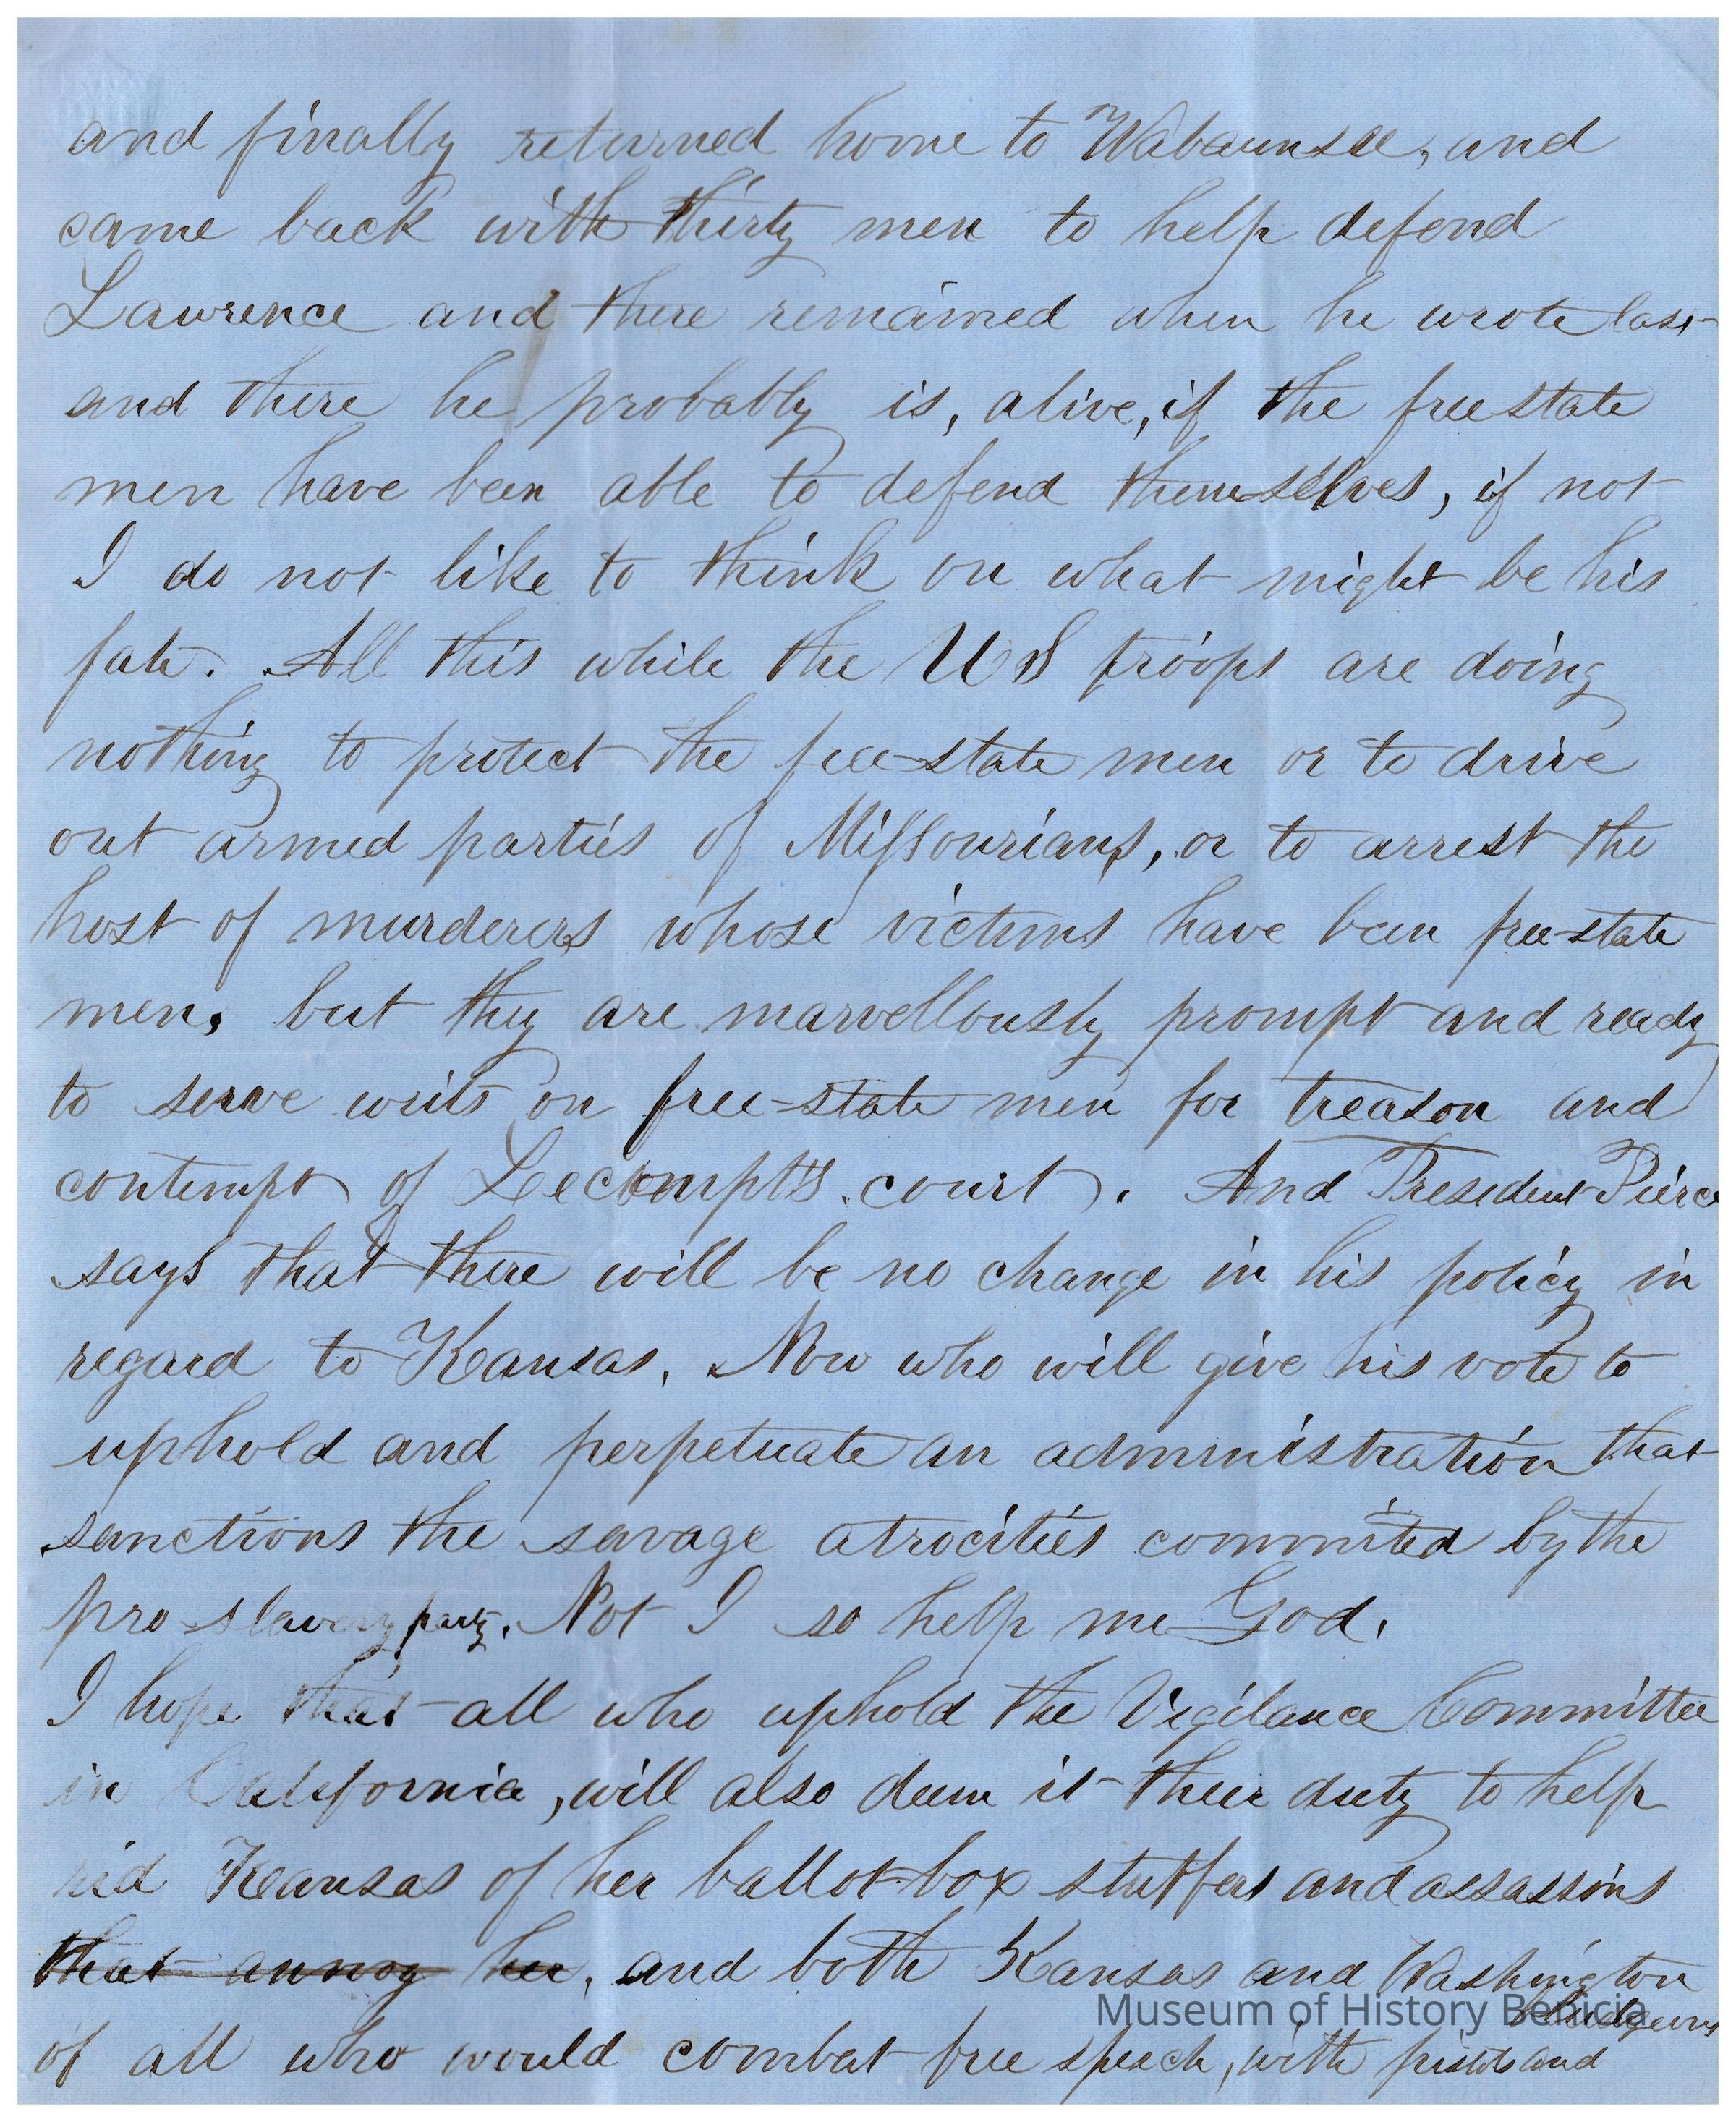 and finally returned home to Wabaunsee, and
came back with thirty men to help defend
Lawrence and there remained when he wrote last
and there he probably is, alive, if the free state
men have been able to defend themselves, if not
I do not like to think on what might be his
fate. All this while the US troops are doing
nothing to protect the free-state men or to drive
out armed parties of Missourians, or to arrest the
host of murderers whose victims have been free-state
men, but they are marvellously prompt and ready
to serve writs on free-state men for treason and
contempt of Lecompt's court. And President Pierce
says that there will be no change in his policy in
regard to Kansas. Now who will give his vote to
uphold and perpetuate an administration that
sanctions the savage atrocities commited by the
pro-slavery party. Not I so help me God.
I hope that all who uphold the Vigilance Committee
in California, will also deem it their duty to help
rid Kansas of her ballot-box stuffers and assassins
that annoy her, and both Kansas and Washington
of all who would combat free speech, with pistols and
bludgeons
Museum of History Benicia